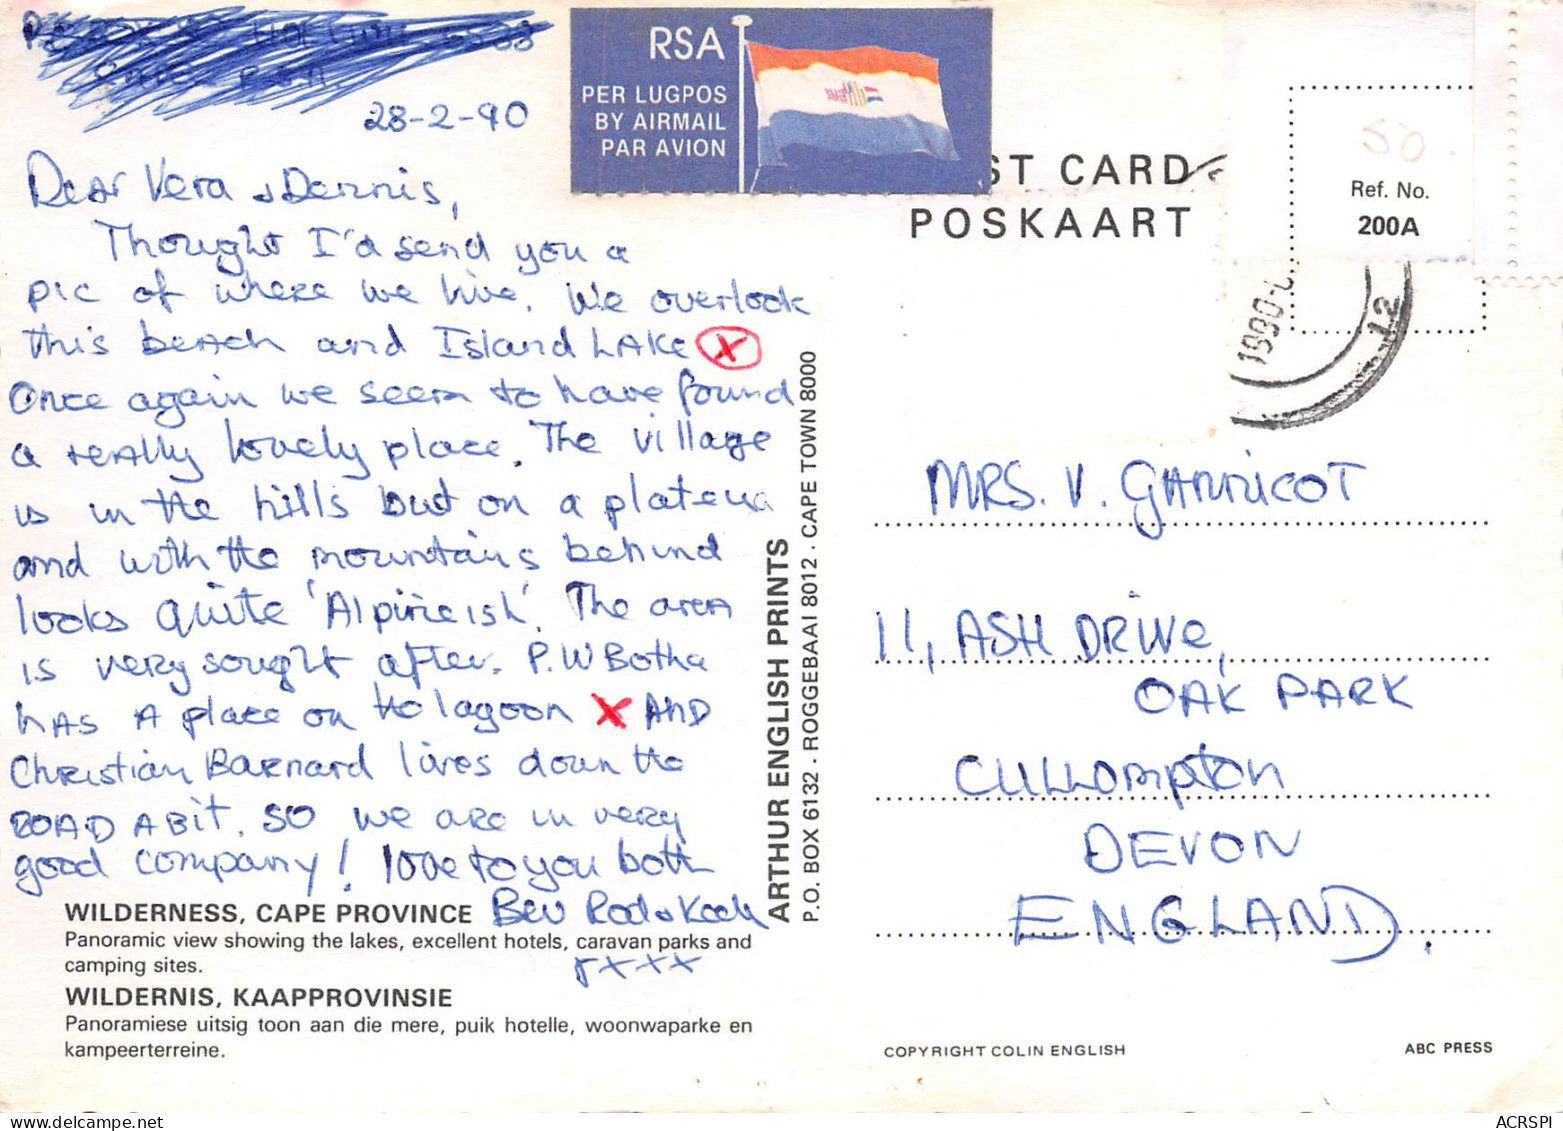 28-2-90
Dear Vera & Dennis,
Thought I'd send you a
pic of where we live. We overlook
this beach and Island LAKE X
Once again we seem to have found
a really lovely place. The village
is in the hills but on a plateua
and with the mountains behind
looks quite 'Alpineish'. The area
is very sought after. P.W Botha
has A place on the lagoon X AND
Christian Barnard lives down the
ROAD A Bit. SO we are in very
good company! love to you both
Bev Rod &
xxxx
WILDERNESS, CAPE PROVINCE
Panoramic view showing the lakes, excellent hotels, caravan parks and
camping sites.
WILDERNIS, KAAPPROVINSIE
Panoramiese uitsig toon aan die mere, puik hotelle, woonwaparke en
kampeerterreine.
ARTHUR ENGLISH PRINTS
P.O. BOX 6132 - ROGGEBAAI 8012 . CAPE TOWN 8000
RSA
PER LUGPOS
BY AIRMAIL
PAR AVION
ST CARD
POSKAART
50
Ref. No.
200A
1990
12
MRS. V. GANNICOT
11, ASH DRIVe,
OAK PARK
CULLOMPTON
DEVON
ENGLAND.
COPYRIGHT COLIN ENGLISH
ABC PRESS
ACRSPI